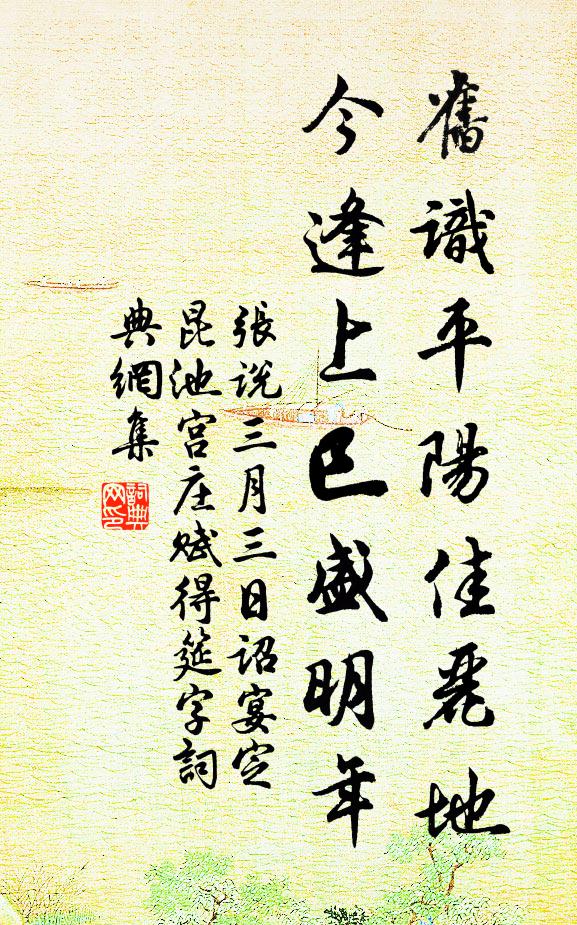 舊識平陽佳麗地
今逢上巳盛明年
張説三月三日詔宴定
昆池宫庄赋得筵字詞
典網集
詞典
网印